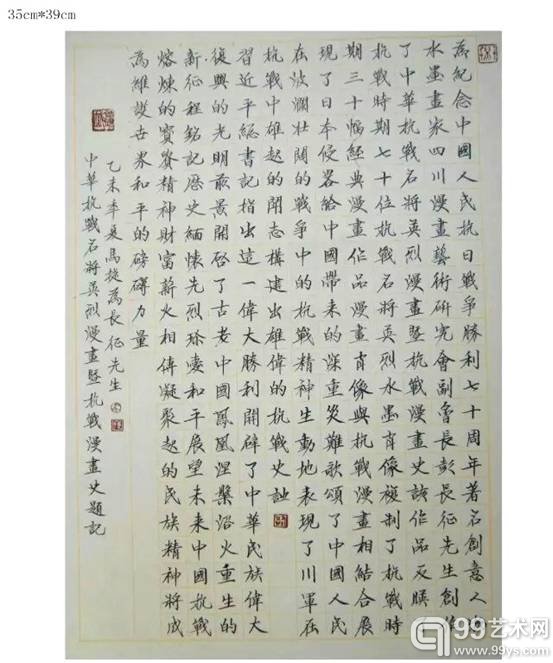 35cm*39cm
為紀念中國人民抗日戰爭勝利七十周年著名創意人
水墨畫家四川漫畫藝術研究會副會長彭長征先生創作
了中華抗戰名將英烈漫畫暨抗戰漫畫史該作品反映
抗戰時期七十位抗戰名將英烈水墨肖像複制了抗戰時
期三十幅經典漫畫作品漫畫肖像與抗戰漫畫相結合展
現了日本侵略給中國帶來的深重災難歌頌了中國人民
在波瀾壯闊的戰爭中的抗戰精神生動地表現了川軍在
抗戰中雄起的鬥志構建出雄偉的抗戰史詩
習近平總書記指出這一偉大勝利開辟了中華民族偉大
復興的光明前景開啓了古老中國鳳凰涅槃浴火重生的
新征程銘記歷史緬懷先烈珍愛和平展望未來中國抗戰
熔煉的寶貴精神財富薪火相傳凝聚起的民族精神將成
為維護世界和平的磅礴力量
乙未季夏馬挺為長征先生
中華抗戰名將英烈漫畫暨抗戰漫畫史題記
99艺术网
www.99ys.com